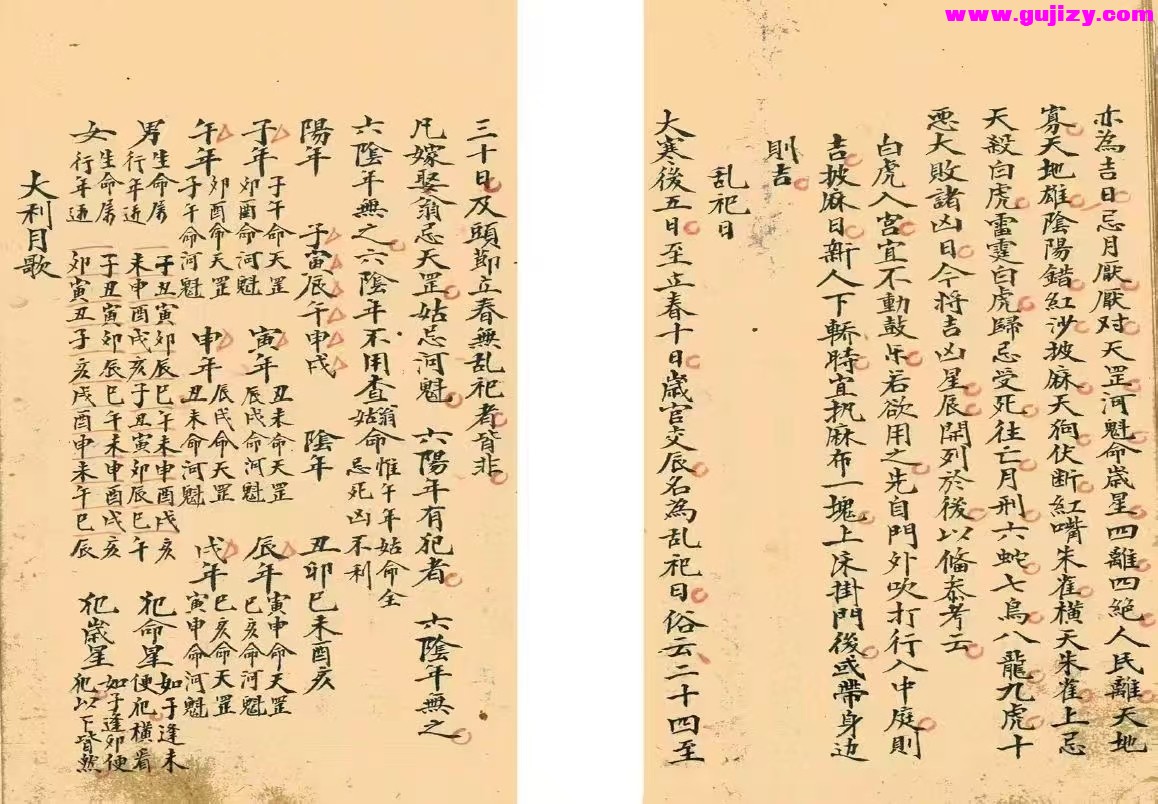 www.gujizy.com
亦為吉日忌月厭厭对天罡河魁命歲星四離四絕人民離天地
寡天地雄陰陽錯紅沙披麻天狗伏断紅嘴朱雀橫天朱雀上忌
天殺白虎雷霆白虎歸忌受死往亡月刑六蛇七鳥八龍九虎十
惡大敗諸凶日今將吉凶星辰開列於後以俻叅考云
白虎入宮宜不動鼓乐若欲用之先自門外吹打行入中庭則
吉披麻日新人下轎時宜执麻布一塊上床掛門後或帶身边
則吉
乱祀日
大寒後五日至立春十日歲官交辰名為乱祀日俗云二十四至
三十日及頭節立春無乱祀者皆非
凡嫁娶翁忌天罡姑忌河魁 六陽年有犯者 六陰年無之
六陰年無之六陰年不用查翁姑命惟午年姑命全忌死凶不利
陽年 子寅辰午申戌 陰年 丑卯巳未酉亥
子年子午命天罡卯酉命河魁 寅年丑未命天罡辰戌命河魁 辰年寅申命天罡巳亥命河魁
午年卯酉命天罡子午命河魁 申年辰戌命天罡丑未命河魁 戌年巳亥命天罡寅申命河魁
男生命属 子丑寅卯辰巳午未申酉戌亥
行年逓 未申酉戌亥子丑寅卯辰巳午 犯命星如子逢未便犯橫看
女生命属 子丑寅卯辰巳午未申酉戌亥
行年逓 卯寅丑子亥戌酉申未午巳辰 犯歲星如子逢卯便犯以下皆然
大利月歌